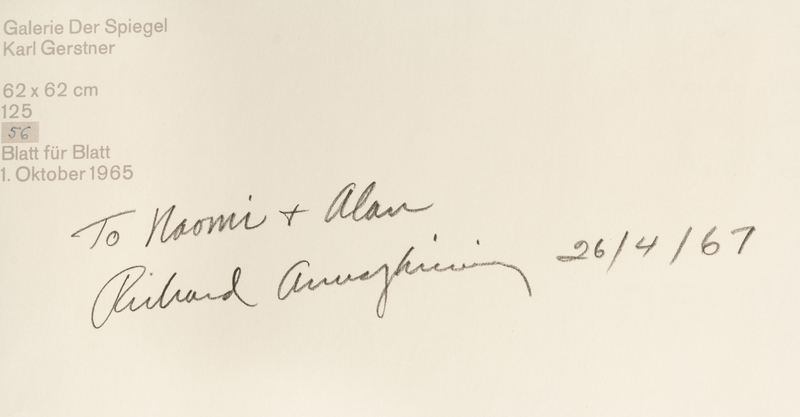 Galerie Der Spiegel
Karl Gerstner
62 x 62 cm
125
56
Blatt für Blatt
1. Oktober 1965
To Naomi + Alan
Richard
26/4/67